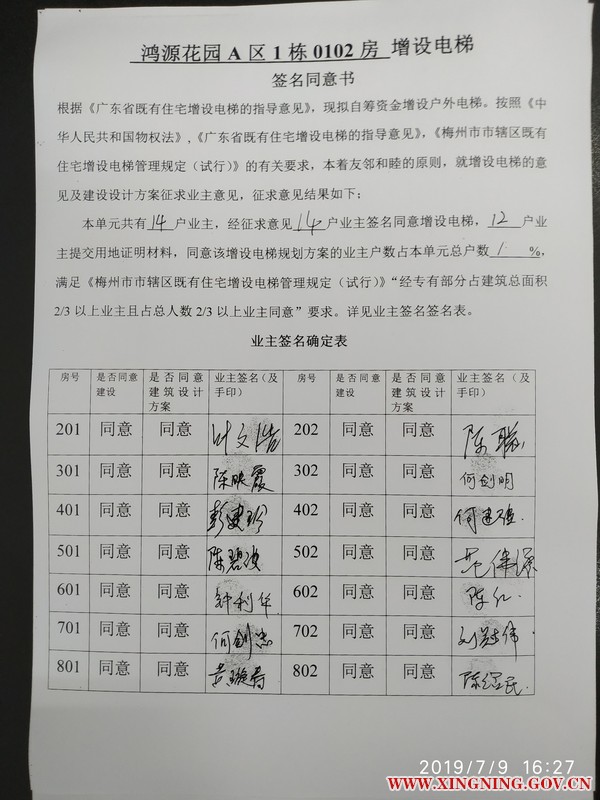 鸿源花园 A 区 1 栋 0102 房 增设电梯
签名同意书
根据《广东省既有住宅增设电梯的指导意见》，现拟自筹资金增设户外电梯。按照《中
华人民共和国物权法》，《广东省既有住宅增设电梯的指导意见》，《梅州市市辖区既有
住宅增设电梯管理规定（试行）》的有关要求，本着友邻和睦的原则，就增设电梯的意
见及建设设计方案征求业主意见，征求意见结果如下；
本单元共有 14 户业主，经征求意见 14 户业主签名同意增设电梯， 12 户业
主提交用地证明材料，同意该增设电梯规划方案的业主户数占本单元总户数 1 %，
满足《梅州市市辖区既有住宅增设电梯管理规定（试行）》“经专有部分占建筑总面积
2/3 以上业主且占总人数 2/3 以上业主同意”要求。详见业主签名签名表。
业主签名确定表
房号 是否同意建设 是否同意建筑设计方案 业主签名（及手印） 房号 是否同意建设 是否同意建筑设计方案 业主签名（及手印）
201 同意 同意 叶文浩 202 同意 同意 陈聪
301 同意 同意 陈映霞 302 同意 同意 何剑明
401 同意 同意 彭建珍 402 同意 同意 何建
501 同意 同意 陈碧 502 同意 同意 范伟
601 同意 同意 钟利华 602 同意 同意 陈
701 同意 同意 何剑忠 702 同意 同意 刘伟
801 同意 同意 黄璇 802 同意 同意 陈民
2019/7/9 16:27
WWW.XINGNING.GOV.CN